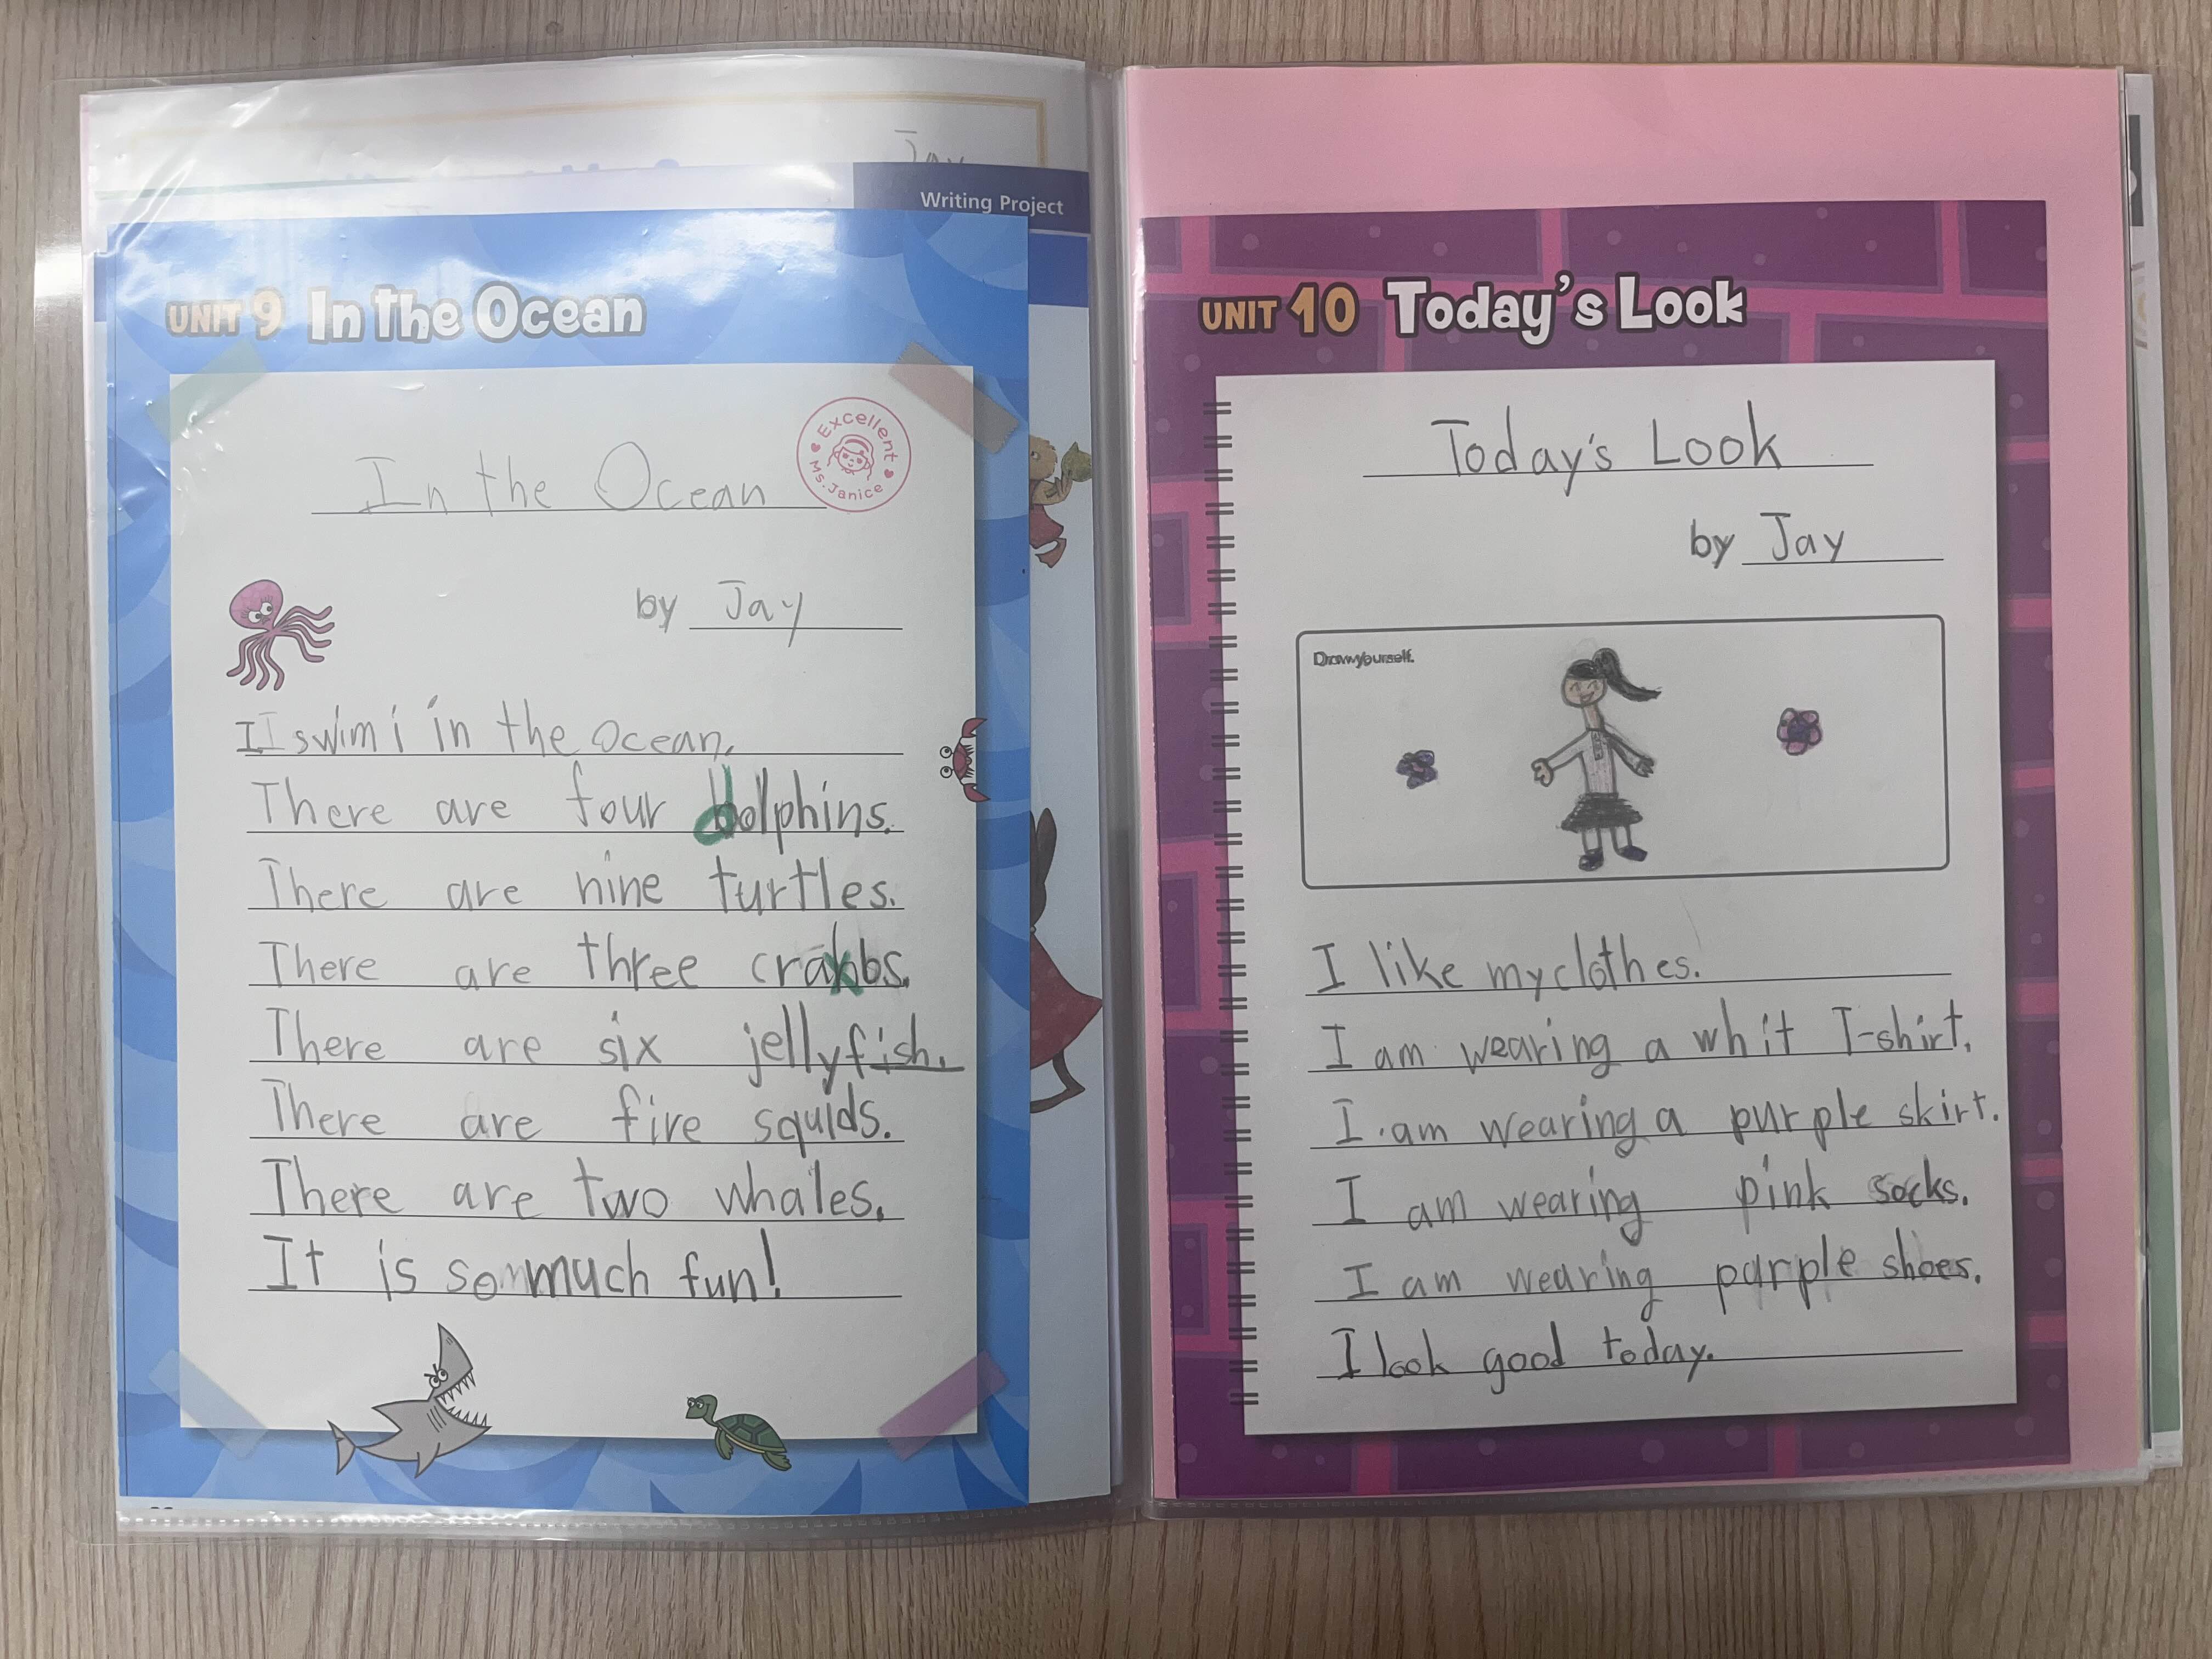 Jay
Writing Project
UNIT 9 In the Ocean
In the Ocean
Excellent
Ms. Janice
by Jay
I I swim i in the ocean.
There are four dolphins.
There are nine turtles.
There are three crabs.
There are six jellyfish.
There are five squids.
There are two whales.
It is so much fun!
UNIT 10 Today's Look
Today's Look
by Jay
Draw yourself.
I like my clothes.
I am wearing a whit T-shirt.
I am wearing a purple skirt.
I am wearing pink socks.
I am wearing purple shoes.
I look good today.